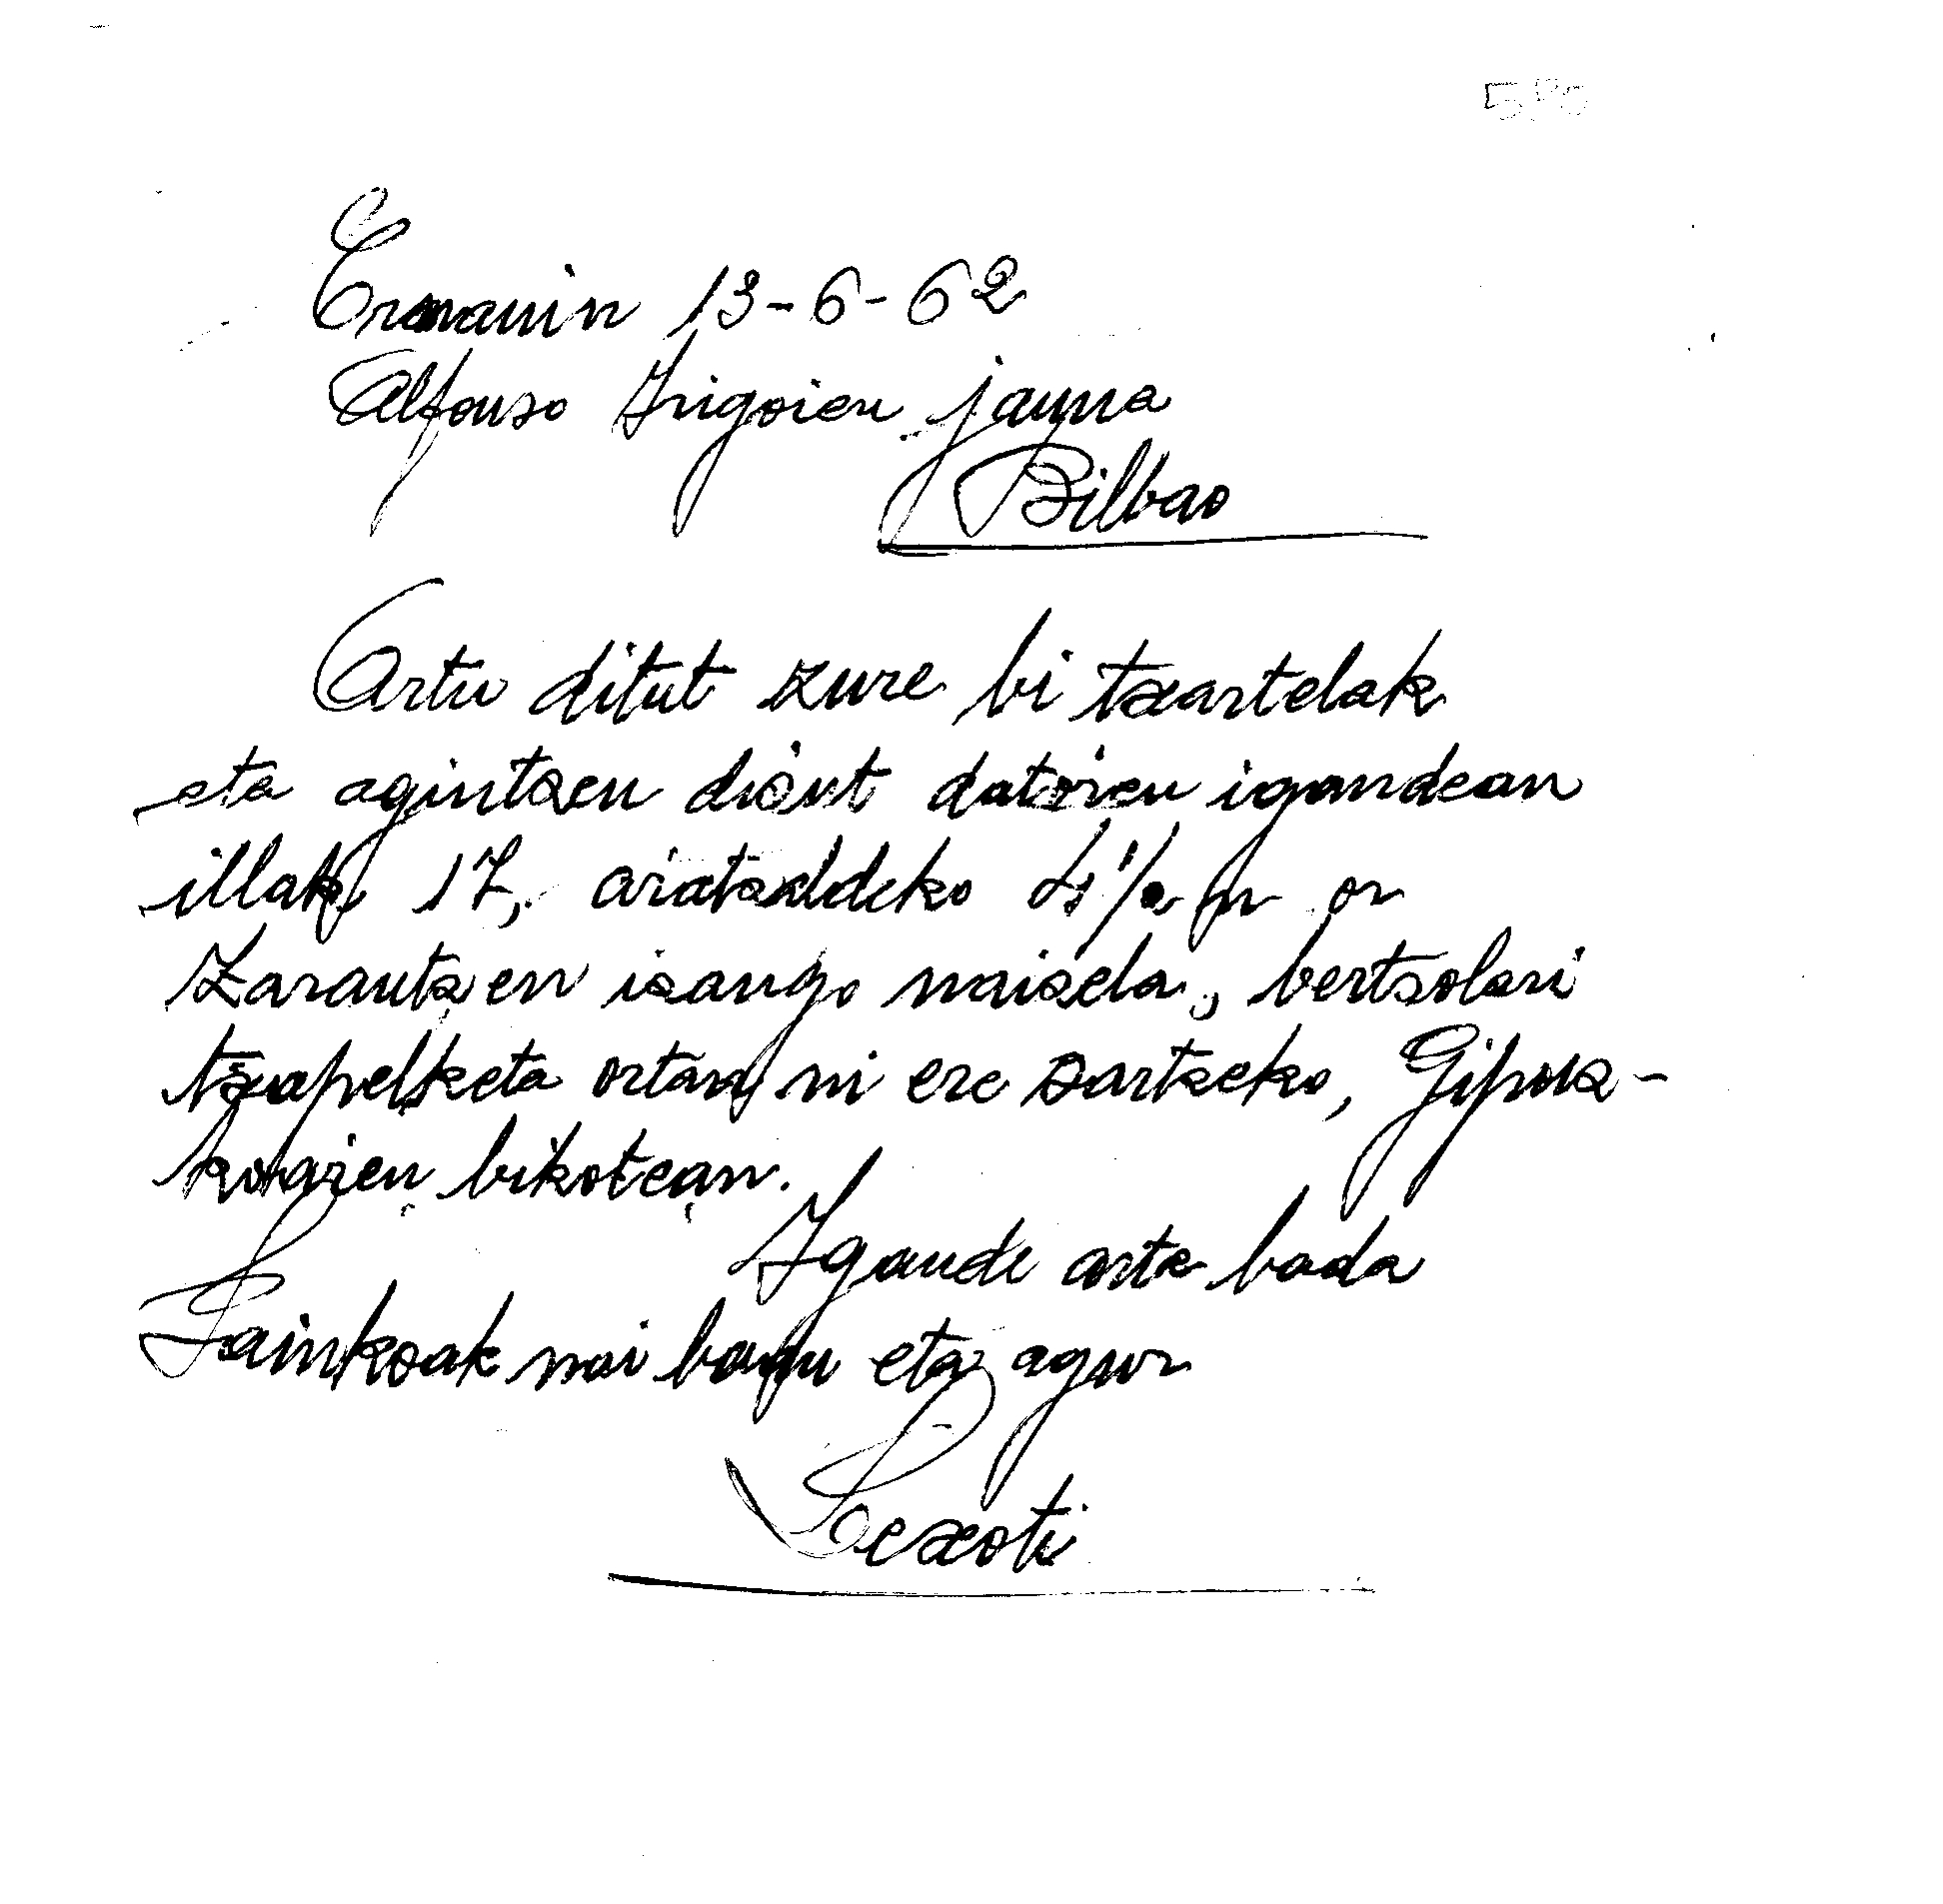 Ernanin 13-6-62
Alfonso Irigoien jauna
Bilbao
Artu ditut zure bi txartelak
eta agintzen dizut datorren igandean
illak 17, arratsaldeko 4 1/2
Zarautzen izango naizela, bertsolari
txapelketa ortan ni ere sartzeko, Gipuz-
koaren bikotean.
Igande arte bada
Jainkoak nai badu eta agur
Lexoti